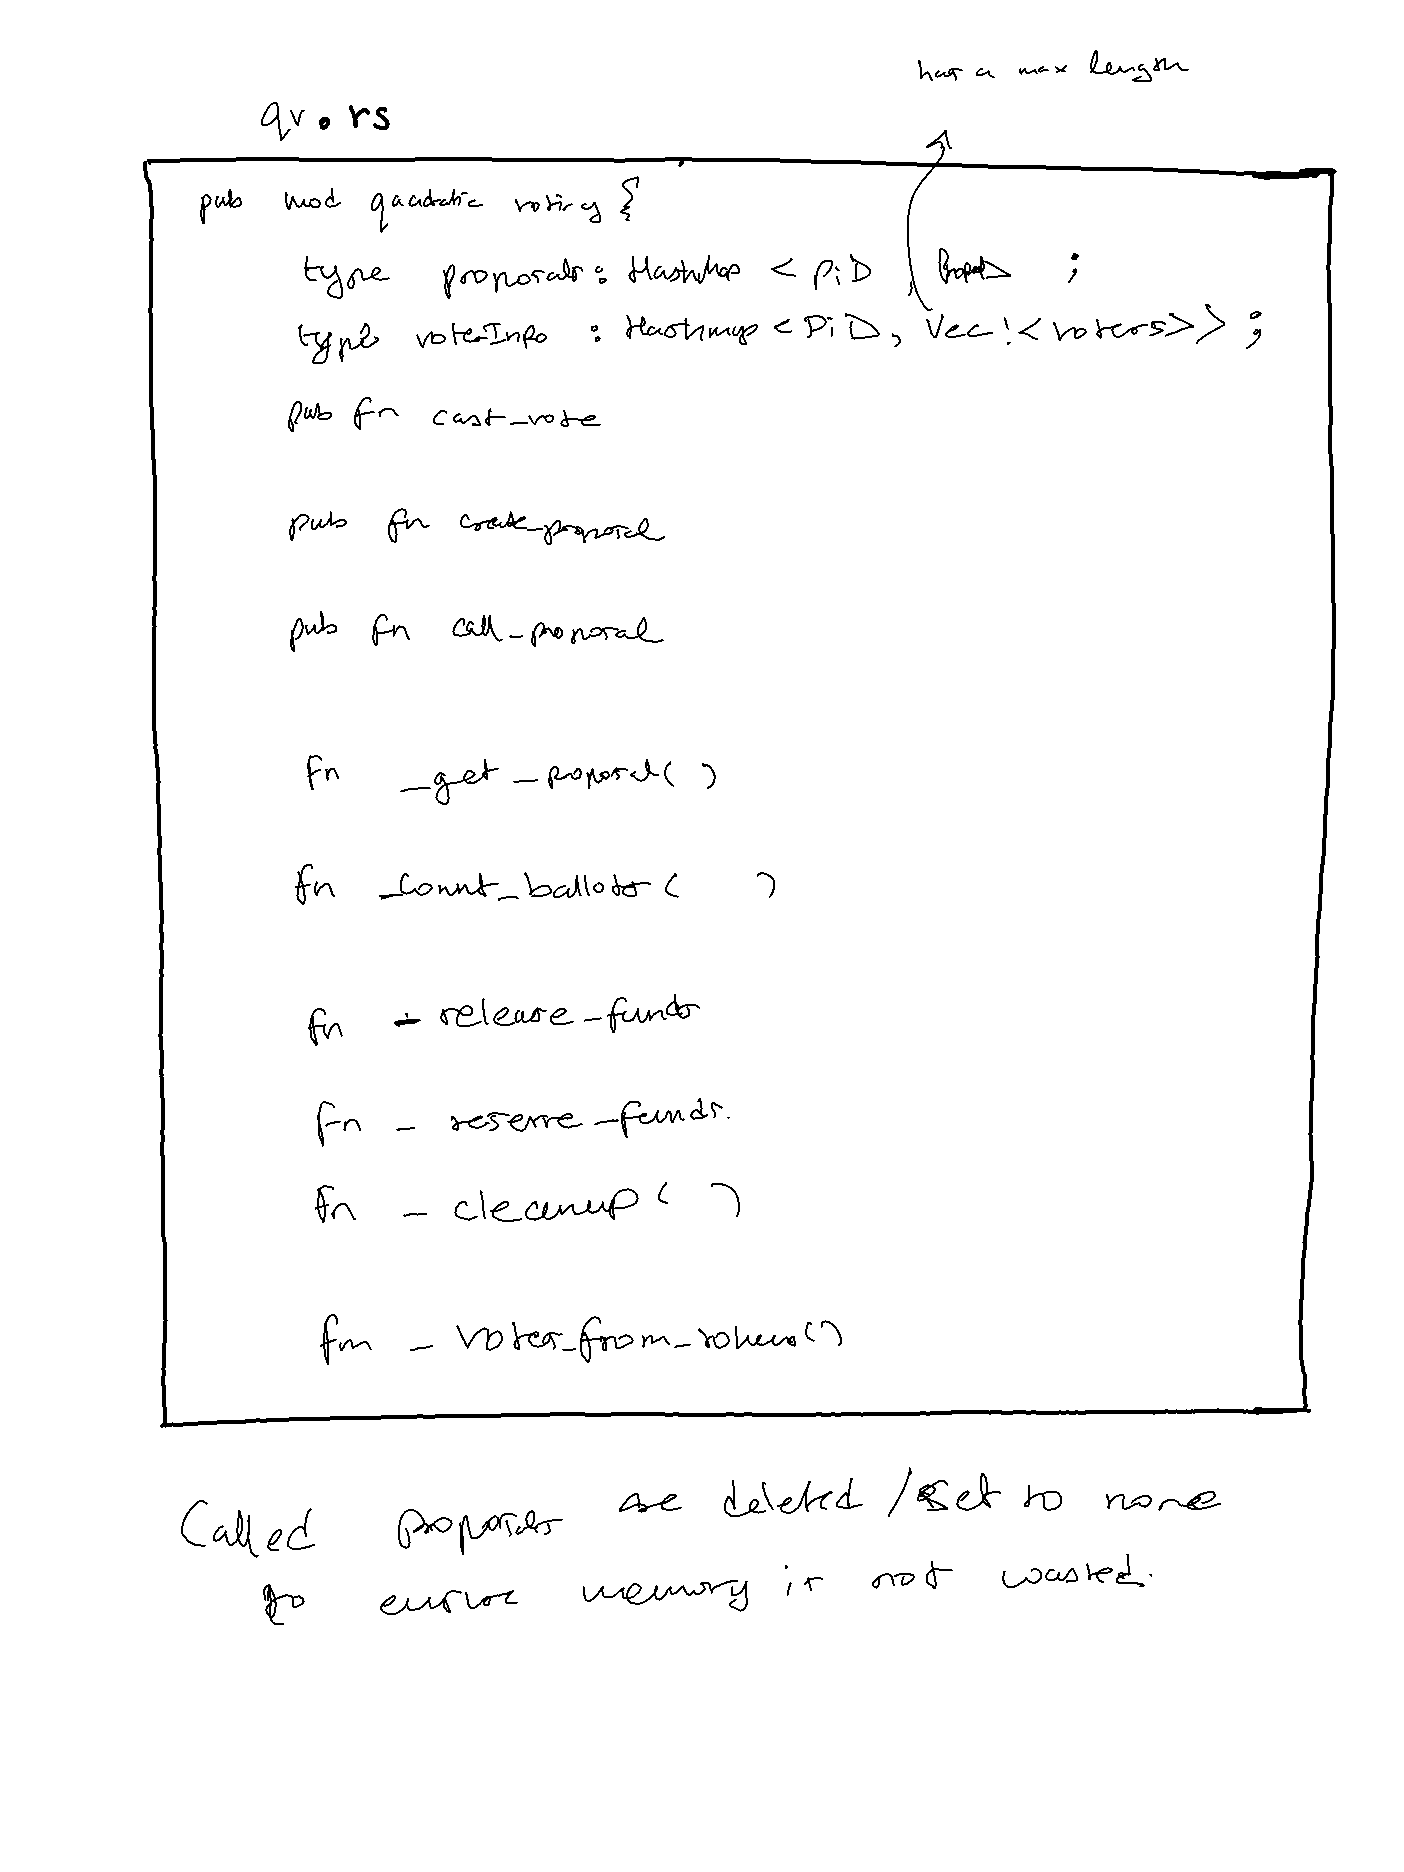 has a max length
qv.rs
pub mod quadratic voting {
type proposals : HashMap < PiD , Proposal> ;
type voterInfo : Hashmap < PiD, Vec!<voters>> ;
pub fn cast_vote
pub fn create_proposal
pub fn call_proposal
fn _get_proposal( )
fn _count_ballots( )
fn _release_funds
fn _reserve_funds.
fn _cleanup( )
fn _votes_from_tokens()
Called proposals are deleted / set to none
to ensure memory is not wasted.